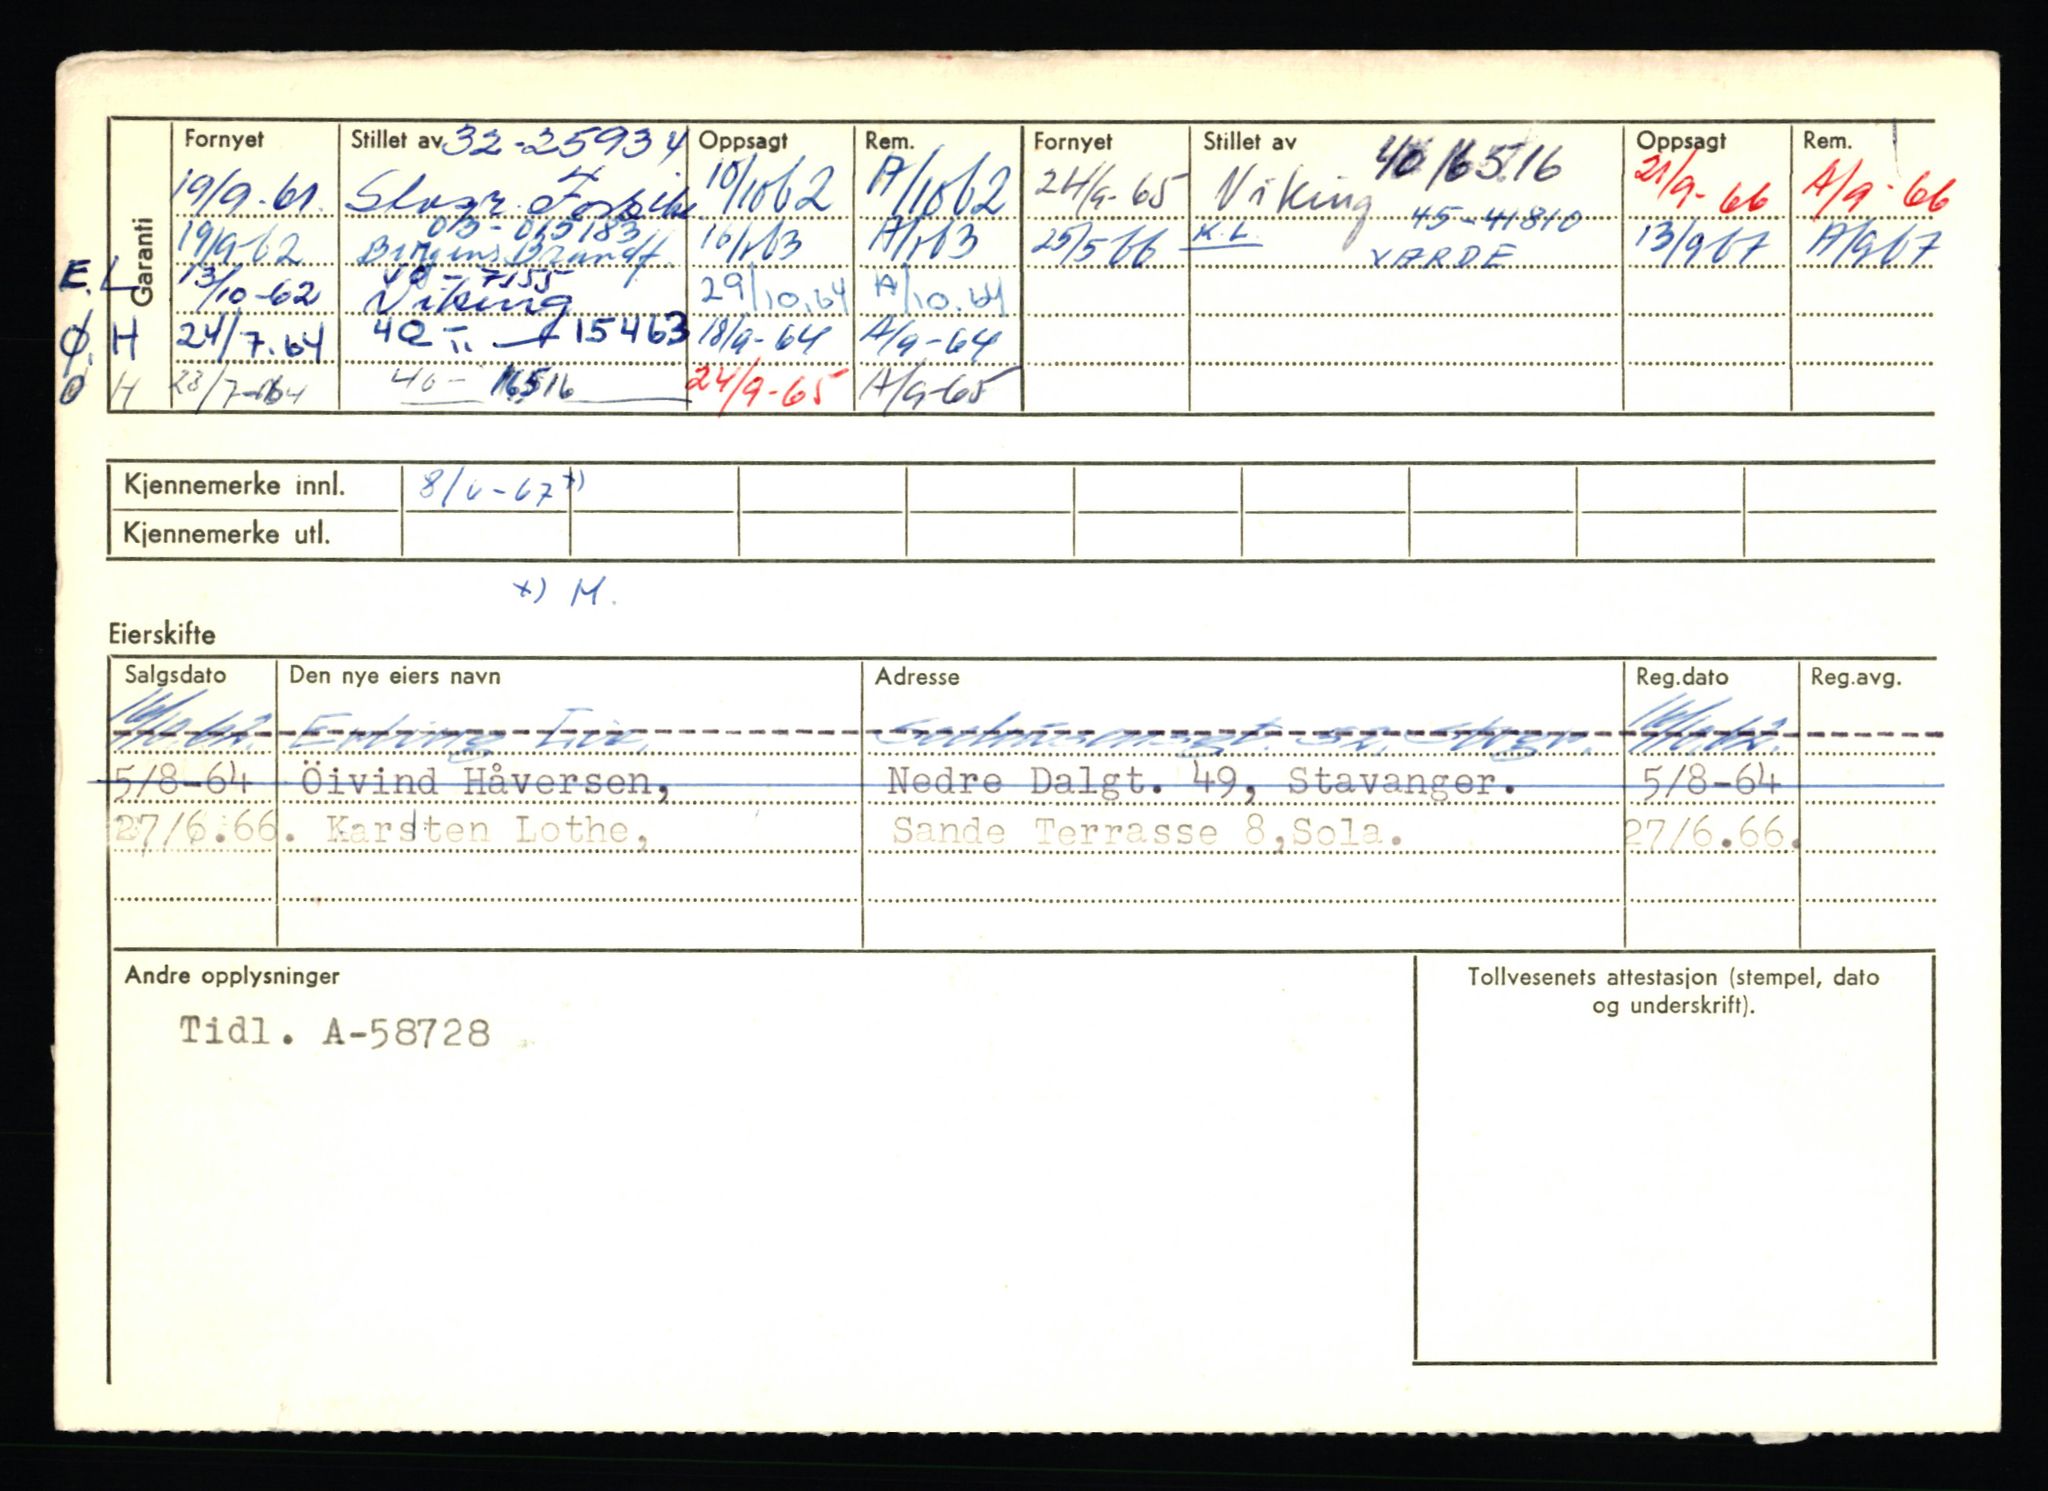 Garanti
Fornyet Stillet av 32-25934 Oppsagt Rem. Fornyet Stillet av 40/16516 Oppsagt Rem.
19/9-61. 10/10 62 A/10 62 24/9-65 Viking 21/9-66 A/9-66
013-015183 45-41810
19/9-62 16/1 63 A/1 63 25/5 66 K.L. VARDE 13/9 67 A/9 67
E.L 13/10-62 Viking 29/10.64 A/10.64
Ø.H 24/7.64 40-"- 15463 18/9-64 A/9-64
Ø H 28/7-64 40- 16516 24/9-65 A/9-65
Kjennemerke innl. 8/6-67 x)
Kjennemerke utl.
x) M.
Eierskifte
Salgsdato Den nye eiers navn Adresse Reg.dato Reg.avg.
Erling
5/8-64 Öivind Håversen, Nedre Dalgt. 49, Stavanger. 5/8-64
27/6.66. Karsten Lothe, Sande Terrasse 8,Sola. 27/6.66.
Andre opplysninger
Tollvesenets attestasjon (stempel, dato
og underskrift).
Tidl. A-58728